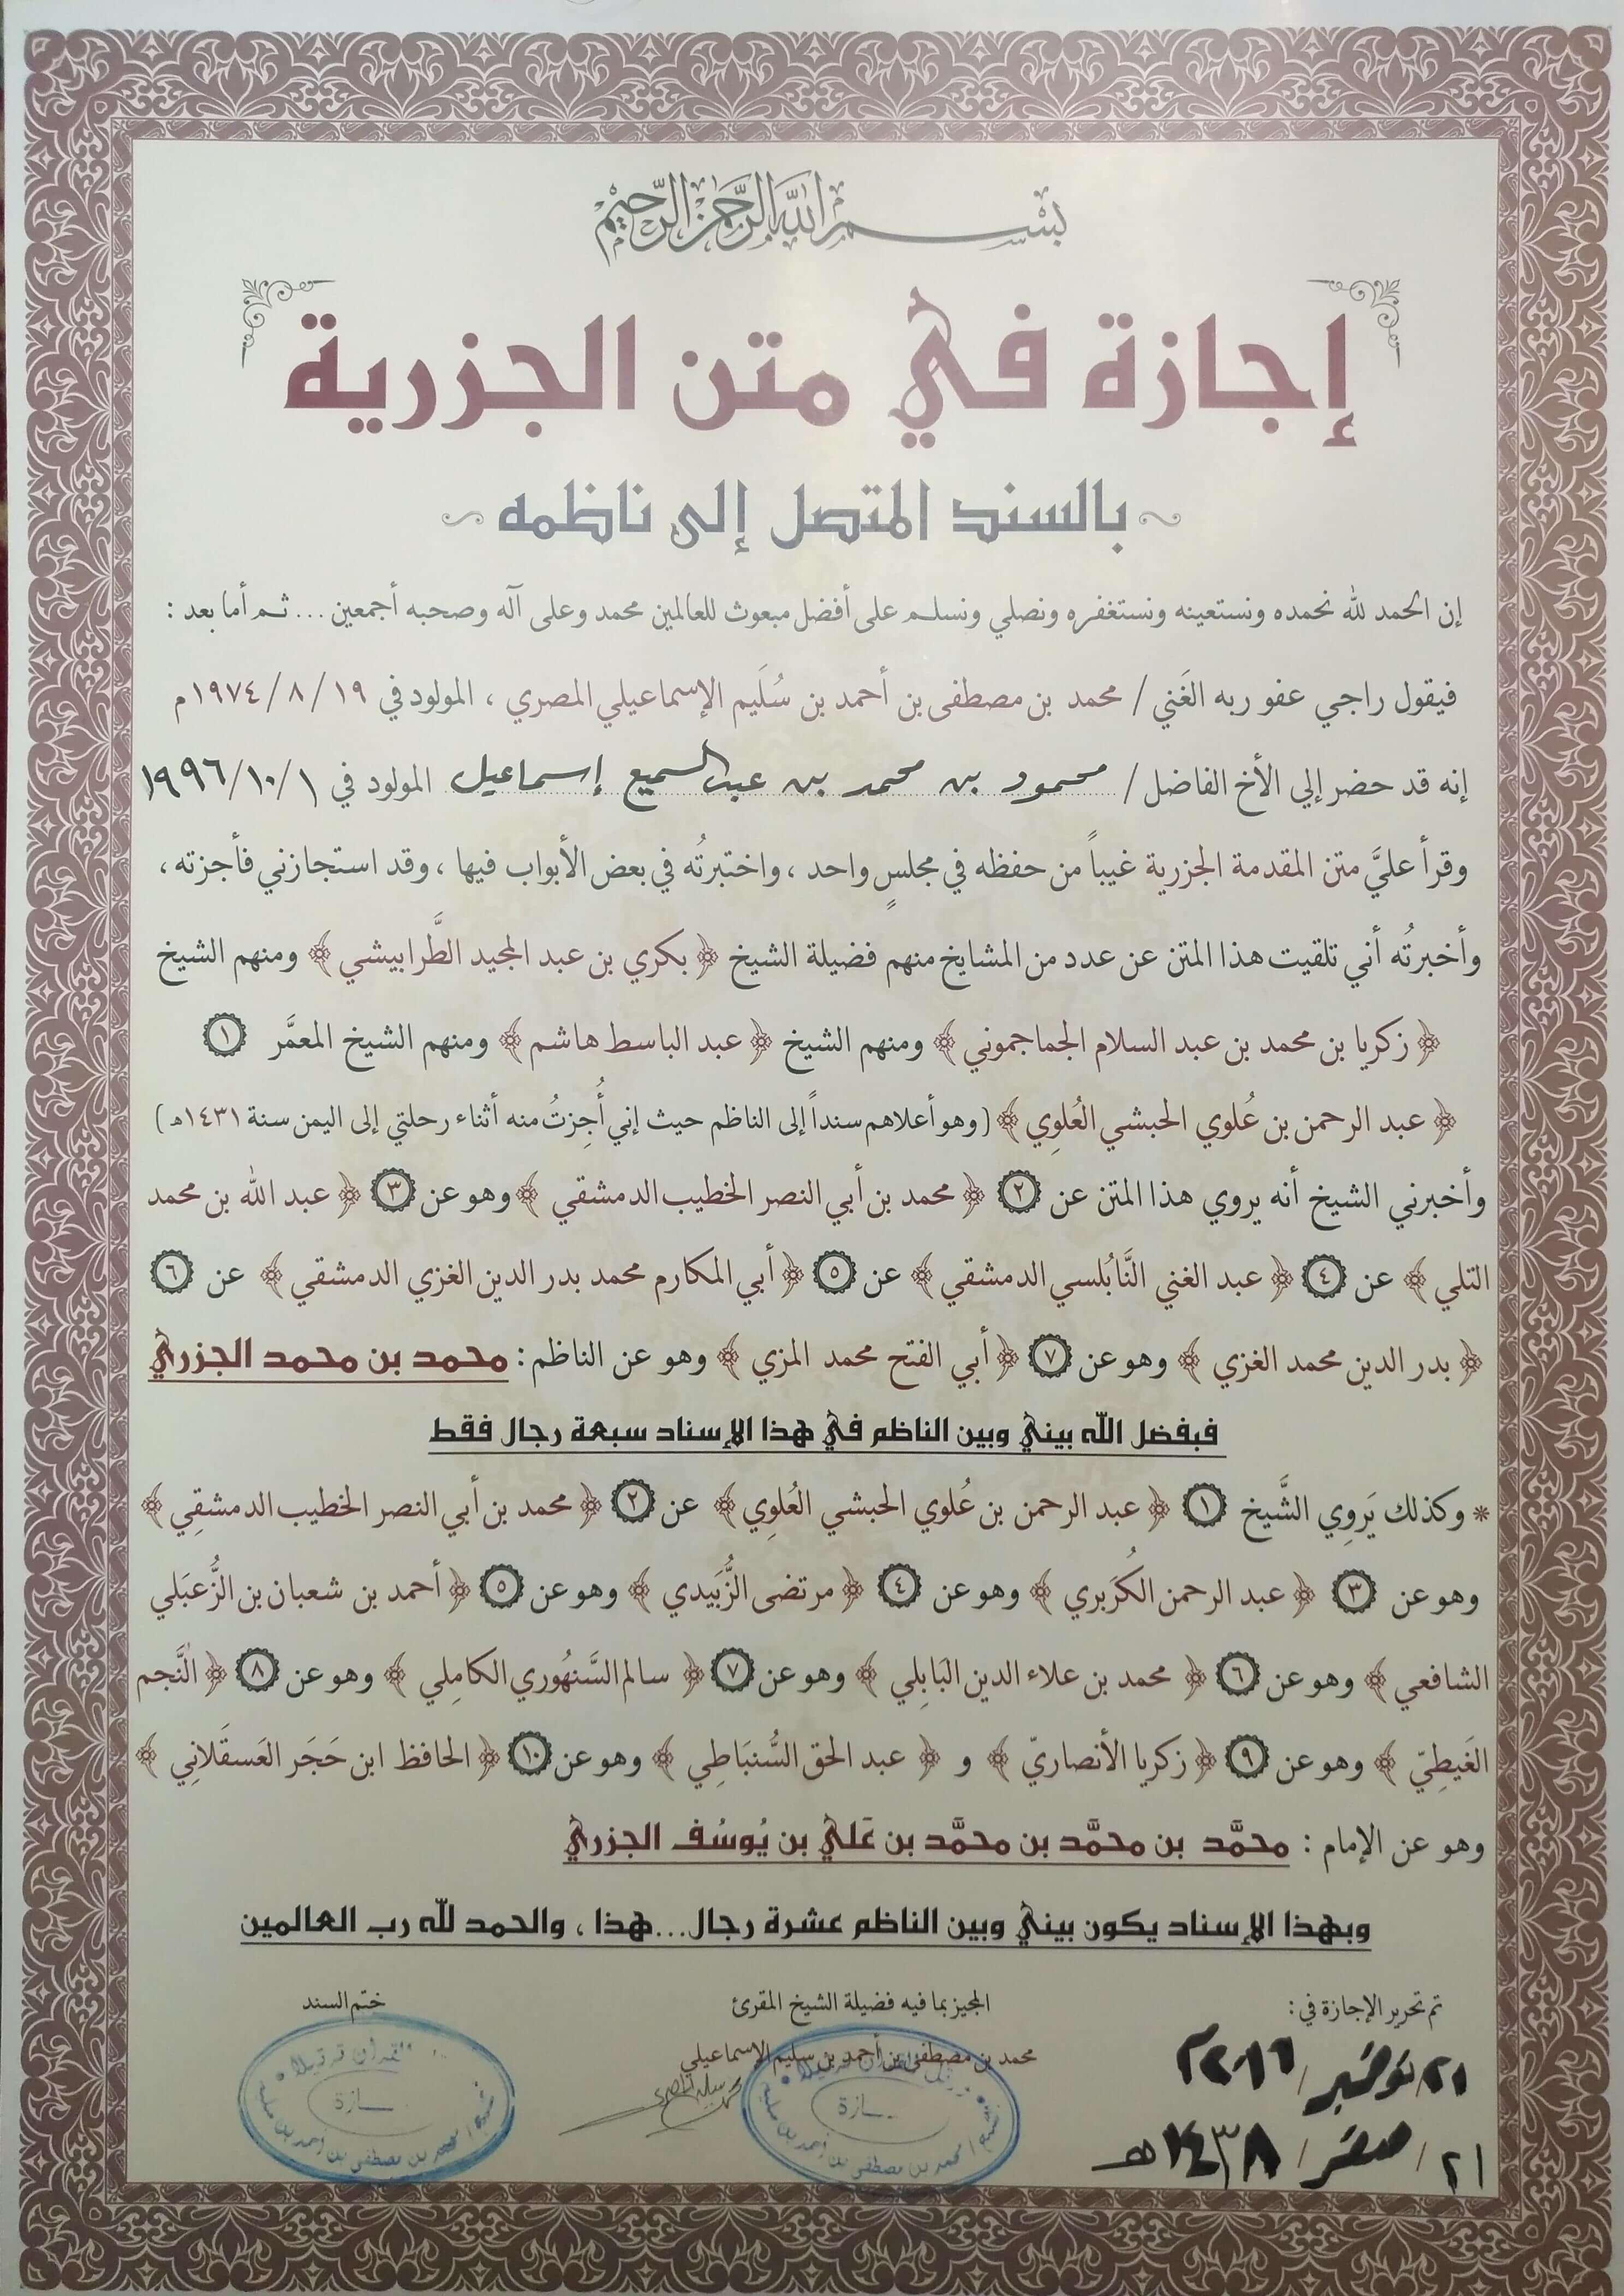 بسم الله الرحمن الرحيم
إجازة في متن الجزرية
بالسند المتصل إلى ناظمه
إن الحمد لله نحمده ونستعينه ونستغفره ونصلي ونسلم على أفضل مبعوث للعالمين محمد وعلى آله وصحبه أجمعين ... ثم أما بعد :
فيقول راجي عفو ربه الغَني / محمد بن مصطفى بن أحمد بن سُلَيم الإسماعيلي المصري ، المولود في ١٩ / ٨ / ١٩٧٤م
إنه قد حضر إلي الأخ الفاضل / محمود بن محمد بن عبد السميع إسماعيل المولود في ١/١٠/١٩٩٦
وقرأ عليَّ متن المقدمة الجزرية غيباً من حفظه في مجلسٍ واحد ، واختبرتُه في بعض الأبواب فيها ، وقد استجازني فأجزته ،
وأخبرتُه أني تلقيت هذا المتن عن عدد من المشايخ منهم فضيلة الشيخ ﴿ بكري بن عبد المجيد الطَّرابيشي ﴾ ومنهم الشيخ
﴿ زكريا بن محمد بن عبد السلام الجماجموني ﴾ ومنهم الشيخ ﴿ عبد الباسط هاشم ﴾ ومنهم الشيخ المعمَّر ١
﴿ عبد الرحمن بن عُلوي الحبشي العُلوِي ﴾ ( وهو أعلاهم سنداً إلى الناظم حيث إني أُجِزتُ منه أثناء رحلتي إلى اليمن سنة ١٤٣١هـ )
وأخبرني الشيخ أنه يروي هذا المتن عن ٢ ﴿ محمد بن أبي النصر الخطيب الدمشقي ﴾ وهو عن ٣ ﴿ عبد الله بن محمد
التلي ﴾ عن ٤ ﴿ عبد الغني النَّابُلسي الدمشقي ﴾ عن ٥ ﴿ أبي المكارم محمد بدر الدين الغزي الدمشقي ﴾ عن ٦
﴿ بدر الدين محمد الغزي ﴾ وهو عن ٧ ﴿ أبي الفتح محمد المزي ﴾ وهو عن الناظم : محمد بن محمد الجزري
فبفضل الله بيني وبين الناظم في هذا الإسناد سبعة رجال فقط
* وكذلك يَروِي الشَّيخ ١ ﴿ عبد الرحمن بن عُلوي الحبشي العُلوِي ﴾ عن ٢ ﴿ محمد بن أبي النصر الخطيب الدمشقِي ﴾
وهو عن ٣ ﴿ عبد الرحمن الكُزبري ﴾ وهو عن ٤ ﴿ مرتضى الزَّبيدي ﴾ وهو عن ٥ ﴿ أحمد بن شعبان بن الزَّعبَلي
الشافعي ﴾ وهو عن ٦ ﴿ محمد بن علاء الدين البَابِلي ﴾ وهو عن ٧ ﴿ سالم السَّنهُوري الكامِلي ﴾ وهو عن ٨ ﴿ النَّجم
الغَيطِيّ ﴾ وهو عن ٩ ﴿ زكريا الأنصاريّ ﴾ و ﴿ عبد الحق السُّنبَاطِي ﴾ وهو عن ١٠ ﴿ الحافظ ابن حَجَر العَسقَلانِي ﴾
وهو عن الإمام : محمَّد بن محمَّد بن محمَّد بن عَلي بن يُوسُف الجزري
وبهذا الإسناد يكون بيني وبين الناظم عشرة رجال...هذا ، والحمد لله رب العالمين
تم تحرير الإجازة في : المجيز بما فيه فضيلة الشيخ المقرئ ختم السند
محمد بن مصطفى بن أحمد بن سليم الإسماعيلي
٢١/نوفمبر/٢٠١٦
٢١/ صفر / ١٤٣٨هـ